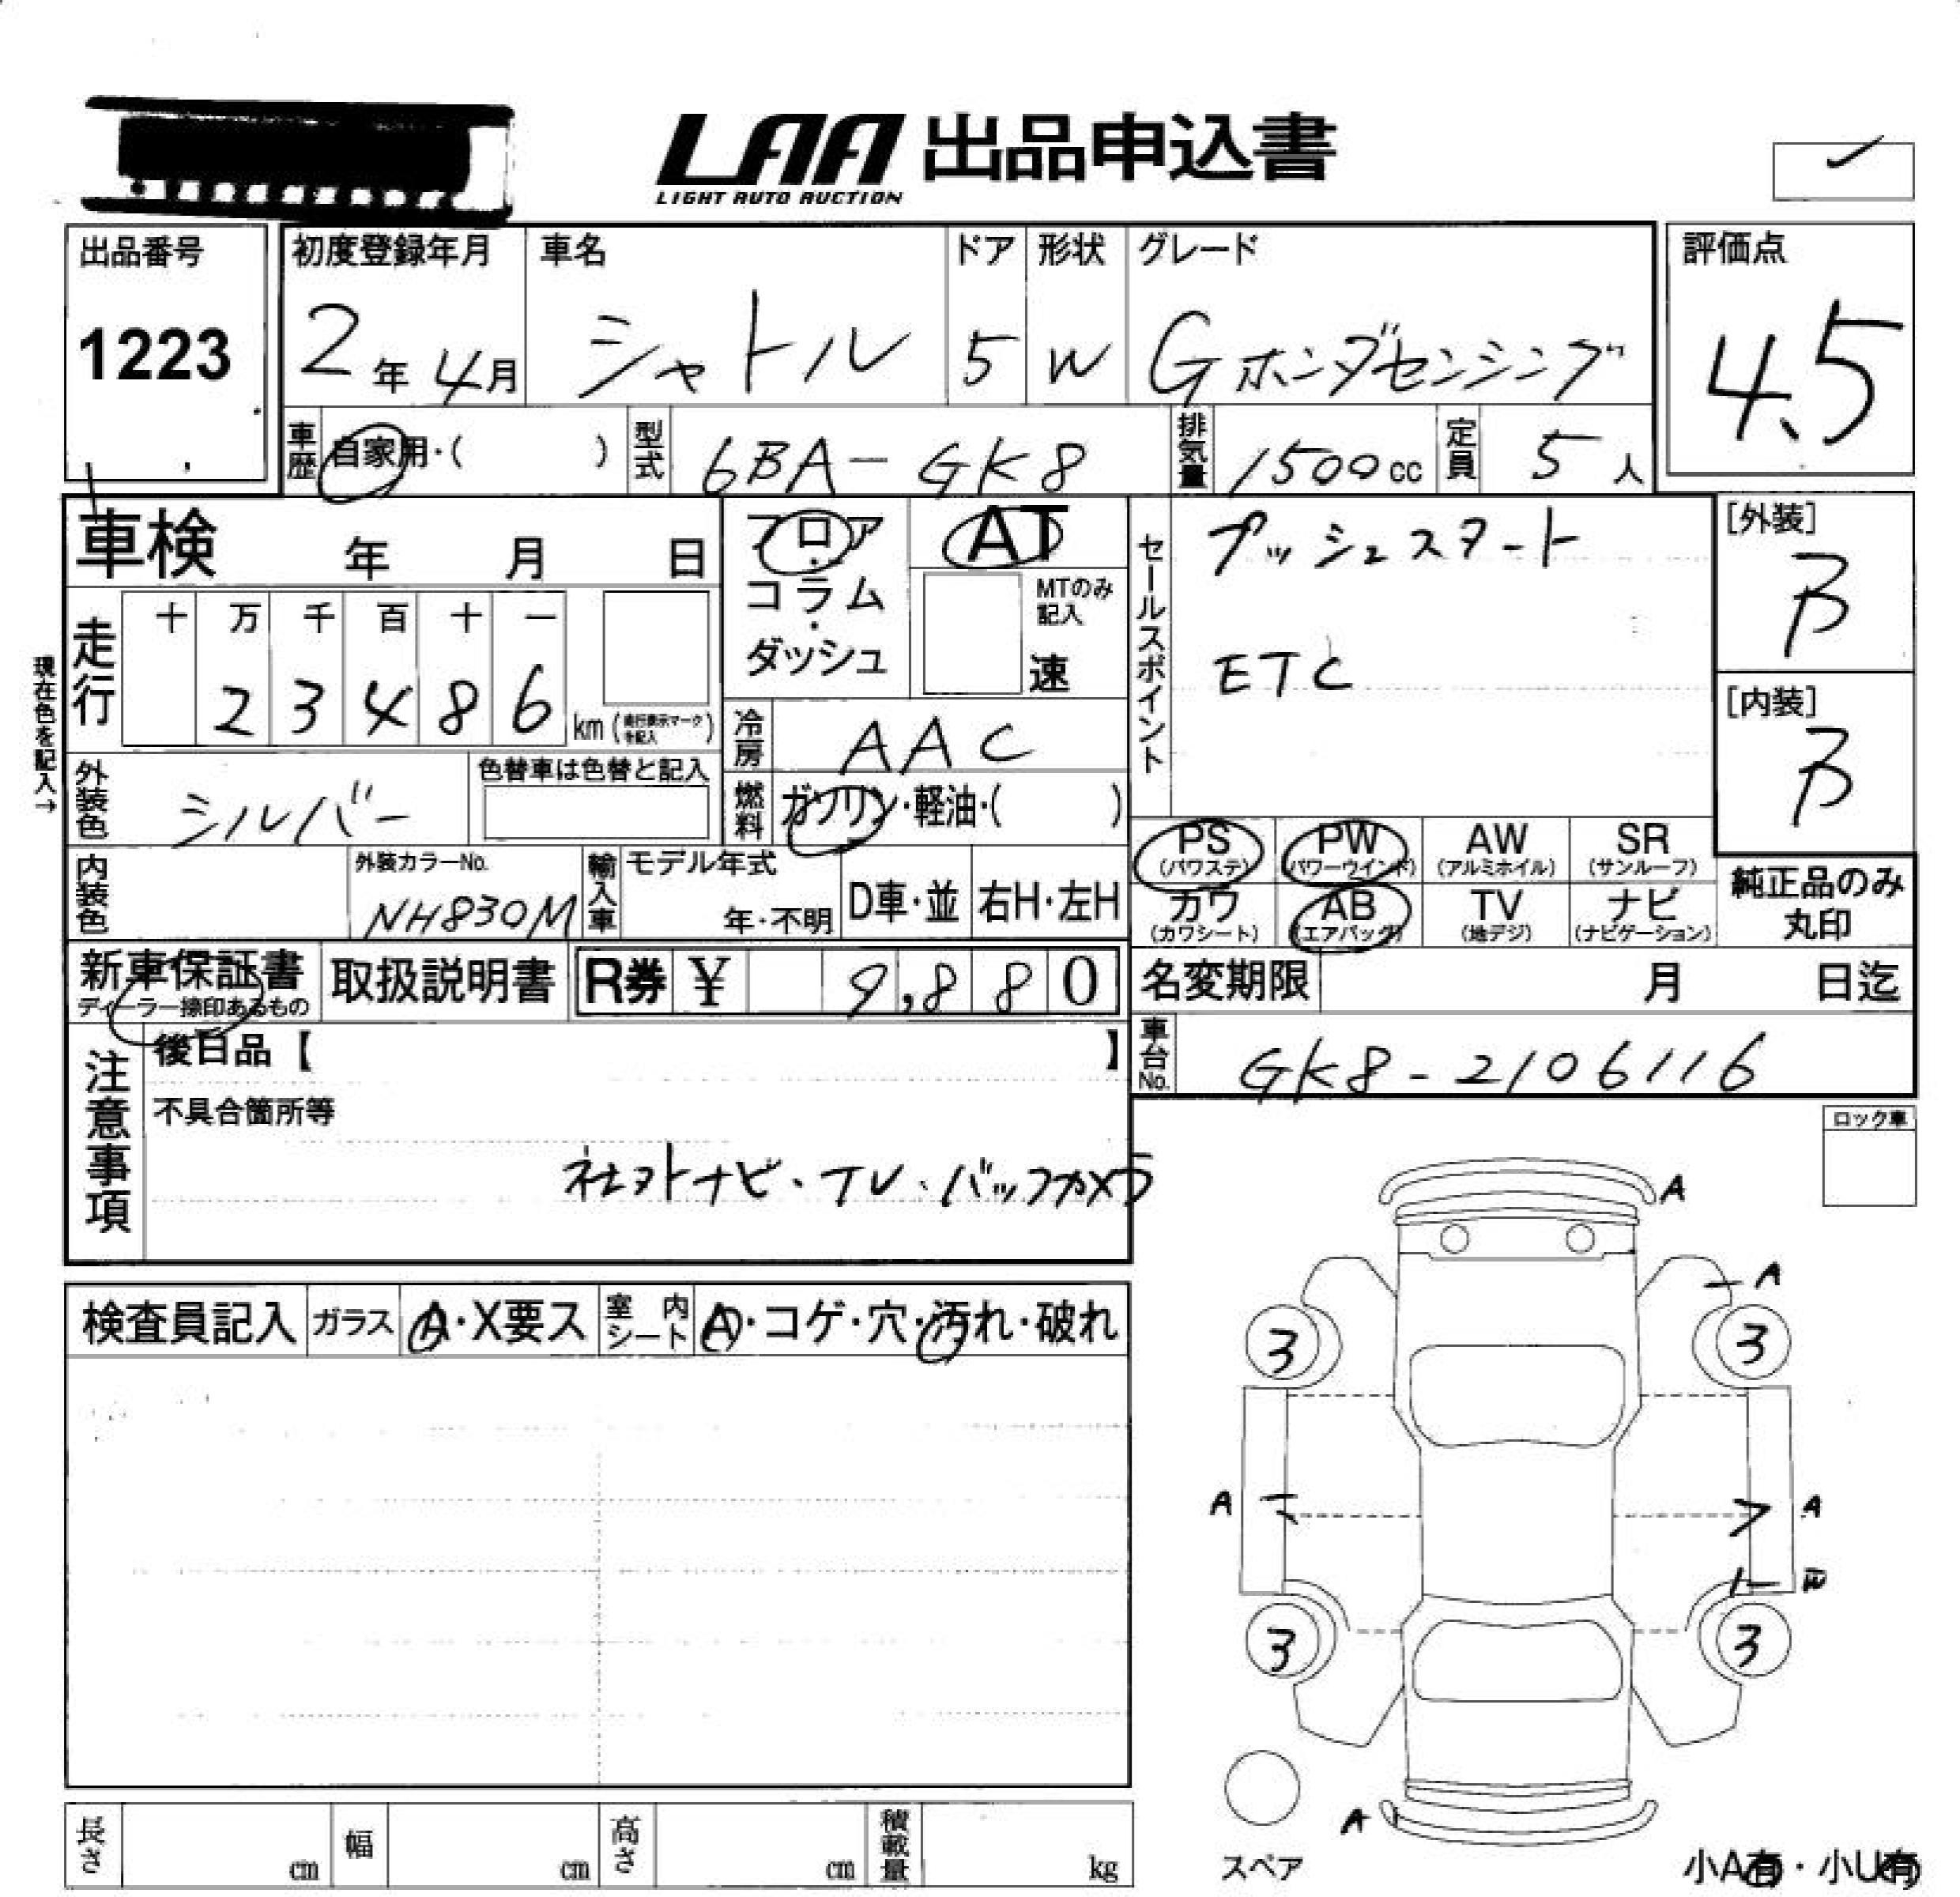 LAA 出品申込書
LIGHT AUTO AUCTION
出品番号
1223
初度登録年月
2年 4月
車名
シャトル
ドア
5
形状
W
グレード
Gホンダセンシング
評価点
4.5
車歴
自家用・( )
型式
6BA-GK8
排気量
1500cc
定員
5人
車検 年 月 日
フロア・コラム・ダッシュ
AT
MTのみ記入
速
セールスポイント
プッシュスタート
ETC
[外装]
B
[内装]
B
現在色を記入→
走行
十 万 千 百 十 一
2 3 4 8 6
km (走行表示マークを記入)
冷房
AAC
外装色
シルバー
色替車は色替と記入
燃料
ガソリン・軽油・( )
PS (パワステ)
PW (パワーウインド)
AW (アルミホイル)
SR (サンルーフ)
カワ (カワシート)
AB (エアバッグ)
TV (地デジ)
ナビ (ナビゲーション)
純正品のみ丸印
内装色
外装カラーNo.
NH830M
輸入車
モデル年式
年・不明
D車・並
右H・左H
新車保証書
ディーラー捺印あるもの
取扱説明書
R券 ¥ 9,880
名変期限 月 日迄
車台No.
GK8-2106116
注意事項
後日品【 】
不具合箇所等
社外ナビ・TV・バックカメラ
ロック車
検査員記入
ガラス
A・X要ス
室内シート
A・コゲ・穴・汚れ・破れ
A
A
3
3
A
A
W
3
3
A
スペア
小A有・小U有
長さ cm
幅 cm
高さ cm
積載量 kg